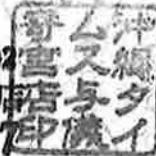 沖縄タイ
ムス与儀
寄宮店印